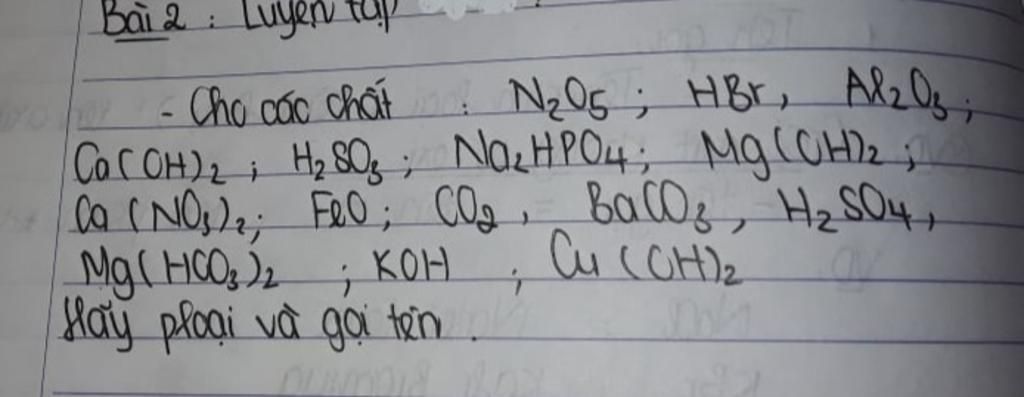 Bài 2 : Luyện tập
- Cho các chất : N₂O₅ ; HBr, Al₂O₃ ;
Ca(OH)₂ ; H₂SO₃ ; Na₂HPO₄ ; Mg(OH)₂ ;
Ca(NO₃)₂ ; FeO ; CO₂ , BaCO₃ , H₂SO₄ ,
Mg(HCO₃)₂ ; KOH ; Cu(OH)₂
Hãy ploại và gọi tên .